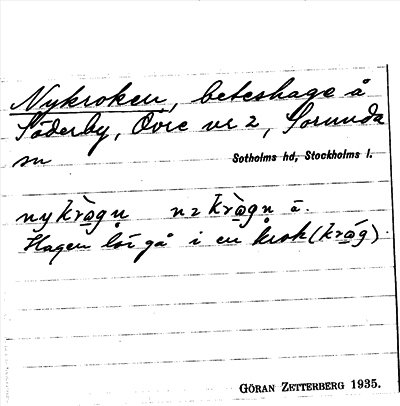 Nykroken, beteshage å
Söderby, Övre nr 2, Sorunda
sn
Sotholms hd, Stockholms l.
nykrògn̥ n2 krògn̥ ā.
Hagen lör gå i en krok (króg).
GÖRAN ZETTERBERG 1935.